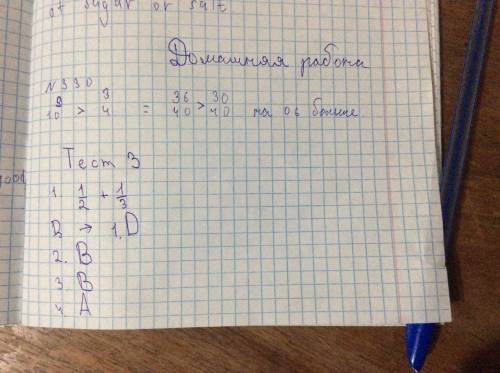 of sugar or salt
Домашняя работа
N 330
9/10 > 3/4 = 36/40 > 30/40 на 06 больше
Тест 3
1. 1/2 + 1/3
B → 1. D
2. B
3. B
4. A